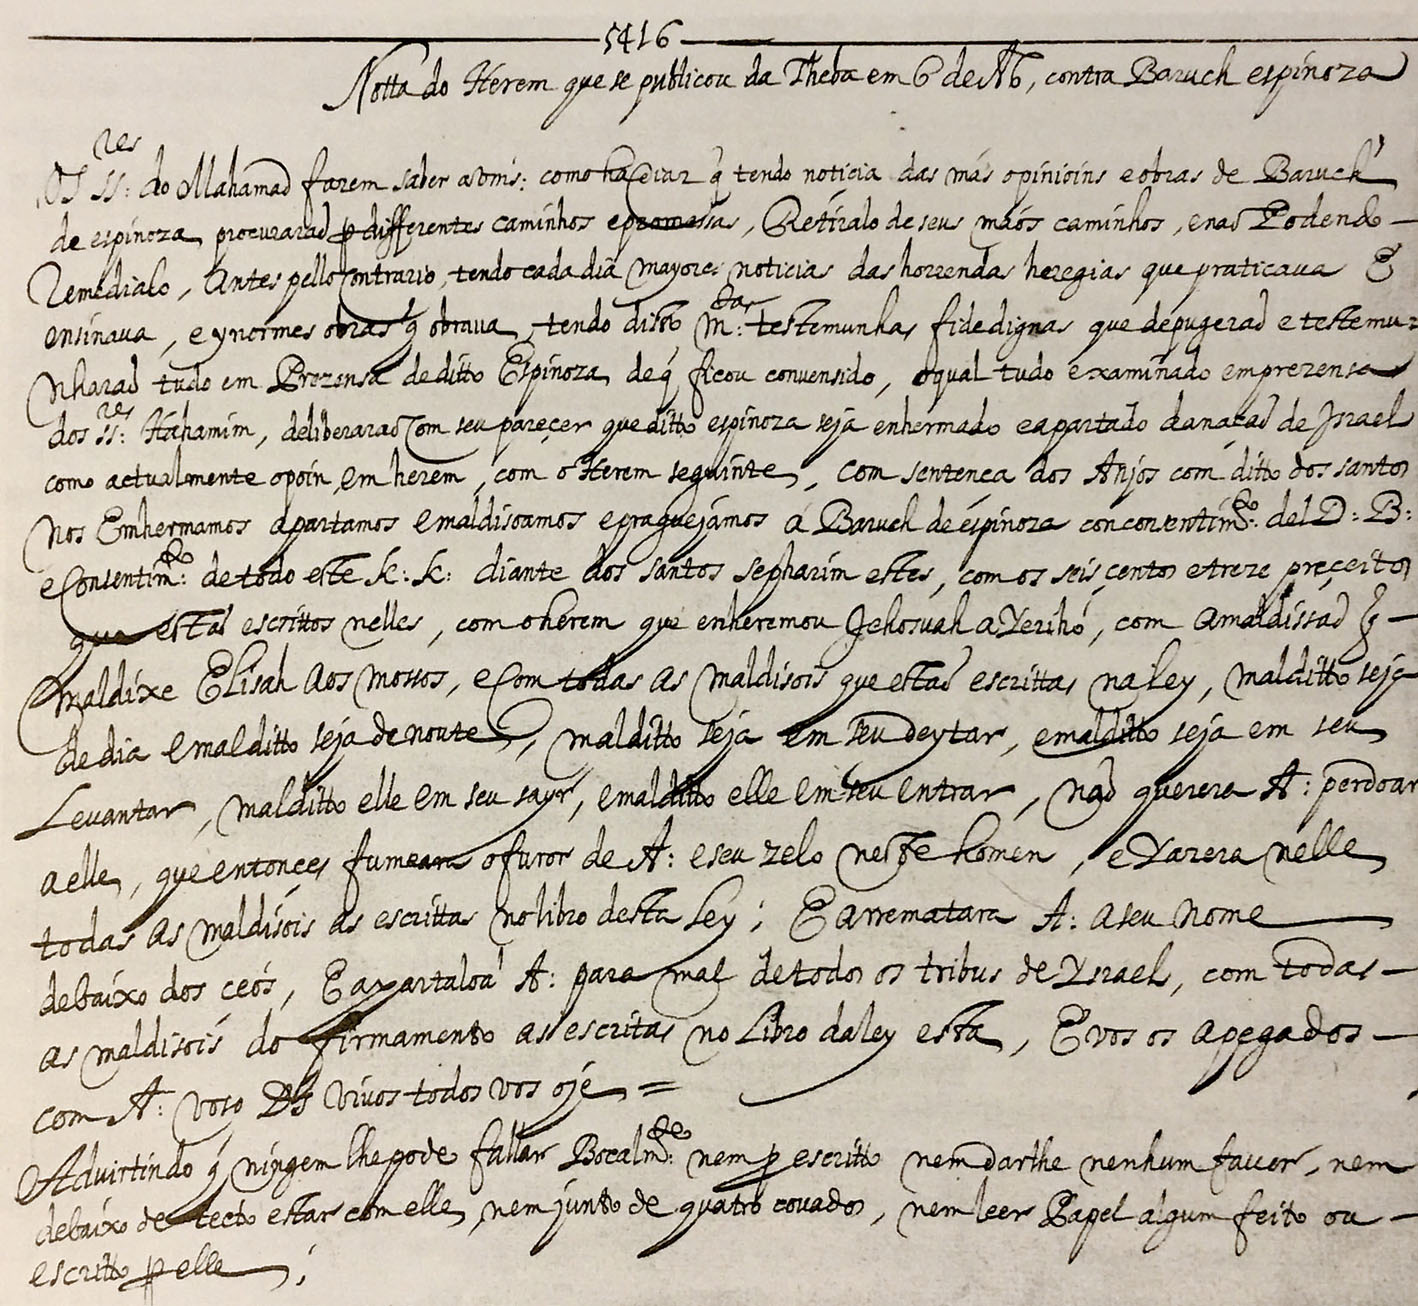 5416
Notta do Herem que se publicou da Theba em 6 de Ab, contra Baruch espinoza
Os SSres: do Mahamad fazem saber a vms: como ha dias q̃ tendo noticia das más opinioins e obras de Baruch
de espinoza procuraraõ p differentes caminhos e promessas, Retíralo de seus máos caminhos, e naõ Podendo —
Remedialo, Antes pello contrario, tendo cada dia mayores noticias das horrendas heregias que praticava E
ensinava, e ynormes obras q̃ obrava, tendo disto m:das testemunhas fidedignas que depugeraõ e testemu=
nharaõ tudo em Prezensa de ditto Espinoza, de q̃ ficou convensido, o qual tudo examinado em prezensa
dos ssres: Hahamim, deliberaraõ com seu pareçer que ditto espinoza seja enhermado e apartado da naçaõ de Israel
como actualmente o poin em herem, com o Herem seguinte, Com sentença dos Anjos com ditto dos santos
Nos Emhermamos apartamos e maldisoamos e praguejamos á Baruch de espinoza con consentim:to del D: B:
e Consentim:to de todo este K: K: diante dos santos sepharim estes, com os seis çentos e treze preçeitos
que estaõ escrittos nelles, com o herem que enheremou Jehosuah a Yerihó, com a maldissaõ q̃ —
maldixe Elisah aos mossos, e Com todas as maldisois que estaõ escrittas na ley, malditto seja
de dia e malditto seja de noute, malditto seja em seu deytar, e malditto seja em seu
Levantar, malditto elle em seu sayr, e malditto elle em seu entrar, naõ querera A: perdoar
a elle, que entonces fumeara o furor de A: e seu zelo neste homen, e Yazera nelle
todas as maldisois as escrittas no libro desta Ley; E arrematara A: a seu nome
debaixo dos çeós, E apartaloá A: para mal de todos os tribus de Ysrael, com todas —
as maldisois do firmamento as escritas no Libro da ley esta, E vos os apegados —
com A: voso Ds vivos todos vos oje =
Advirtindo q̃ ningem lhe pode fallar Bocalm:te nem p escritto nem darlhe nenhum favor, nem
debaixo de tecto estar com elle, nem junto de quatro covados, nem leer Papel algum feito ou —
escritto p elle;